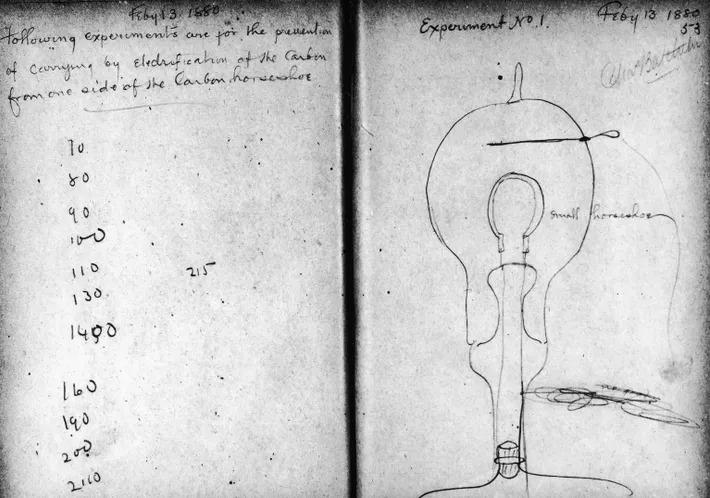 Feby 13. 1880
Following experiments are for the prevention
of carrying by Electrification of the Carbon
from one side of the Carbon horseshoe
70
80
90
100
110
215
130
160
190
200
Experiment No. 1.
Feby 13 1880
53
small horseshoe